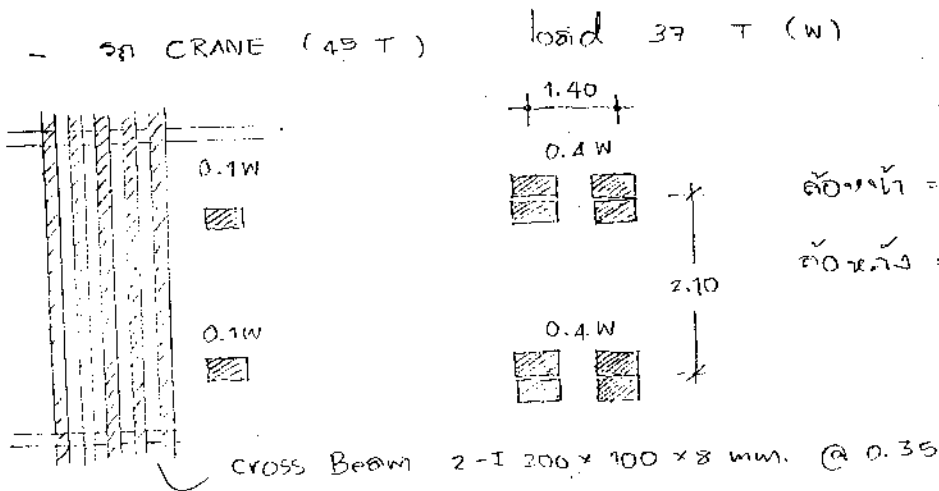 - รถ CRANE (45 T) load 37 T (W)
1.40
0.1W
0.4W
ล้อหน้า =
ล้อหลัง =
2.10
0.1W
0.4W
cross Beam 2-I 200 x 100 x 8 mm. @ 0.35